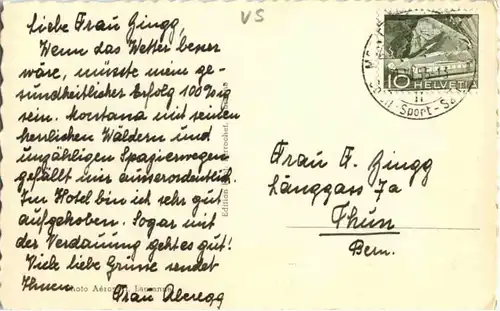 VS
Liebe Frau Zingg,
Wenn das Wetter besser
wäre, müsste mein ge-
sundheitlicher Erfolg 100%ig
sein. Montana mit seinen
herrlichen Wäldern und
unzähligen Spazierwegen
gefällt mir ausserordentlich.
Im Hotel bin ich sehr gut
aufgehoben. Sogar mit
der Verdauung geht es gut!
Viele liebe Grüsse sendet
Ihnen
Frau Aberegg
Photo Lausanne
Edition
10 HELVETIA
Sport
Frau F. Zingg
Länggass 7a
Thun
Bern.